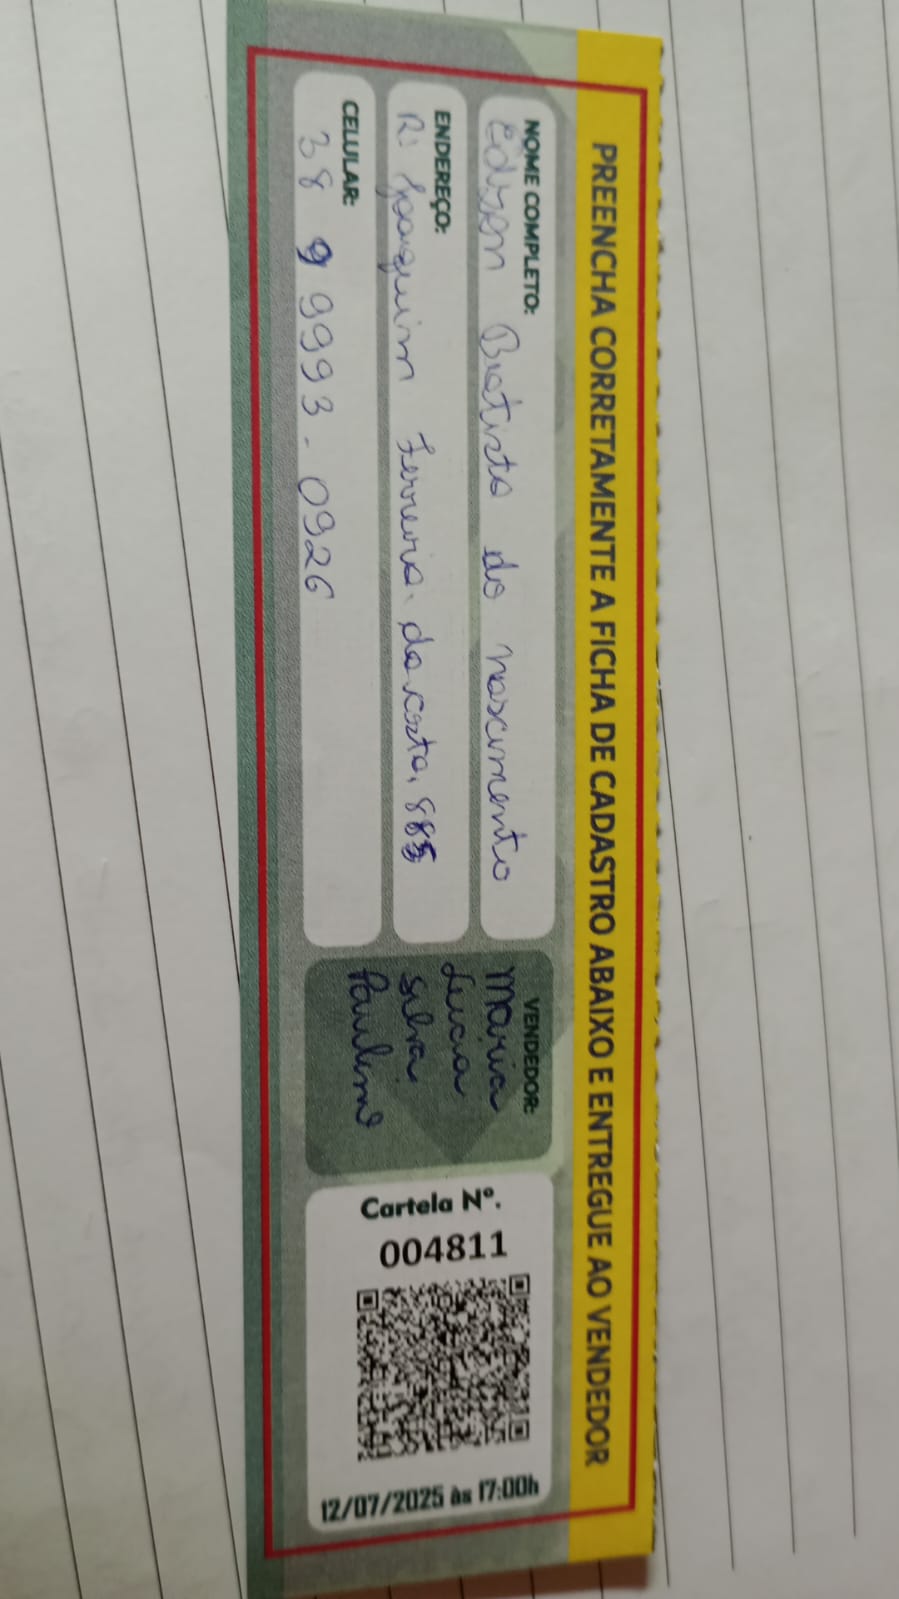 PREENCHA CORRETAMENTE A FICHA DE CADASTRO ABAIXO E ENTREGUE AO VENDEDOR
NOME COMPLETO:
Edson Batista do nascimento
ENDEREÇO:
R: Joaquim Ferreira da costa, 885
CELULAR:
38 9 9993-0926
VENDEDOR:
Maria
Lucia
silva
Cartela Nº.
004811
12/07/2025 às 17:00h